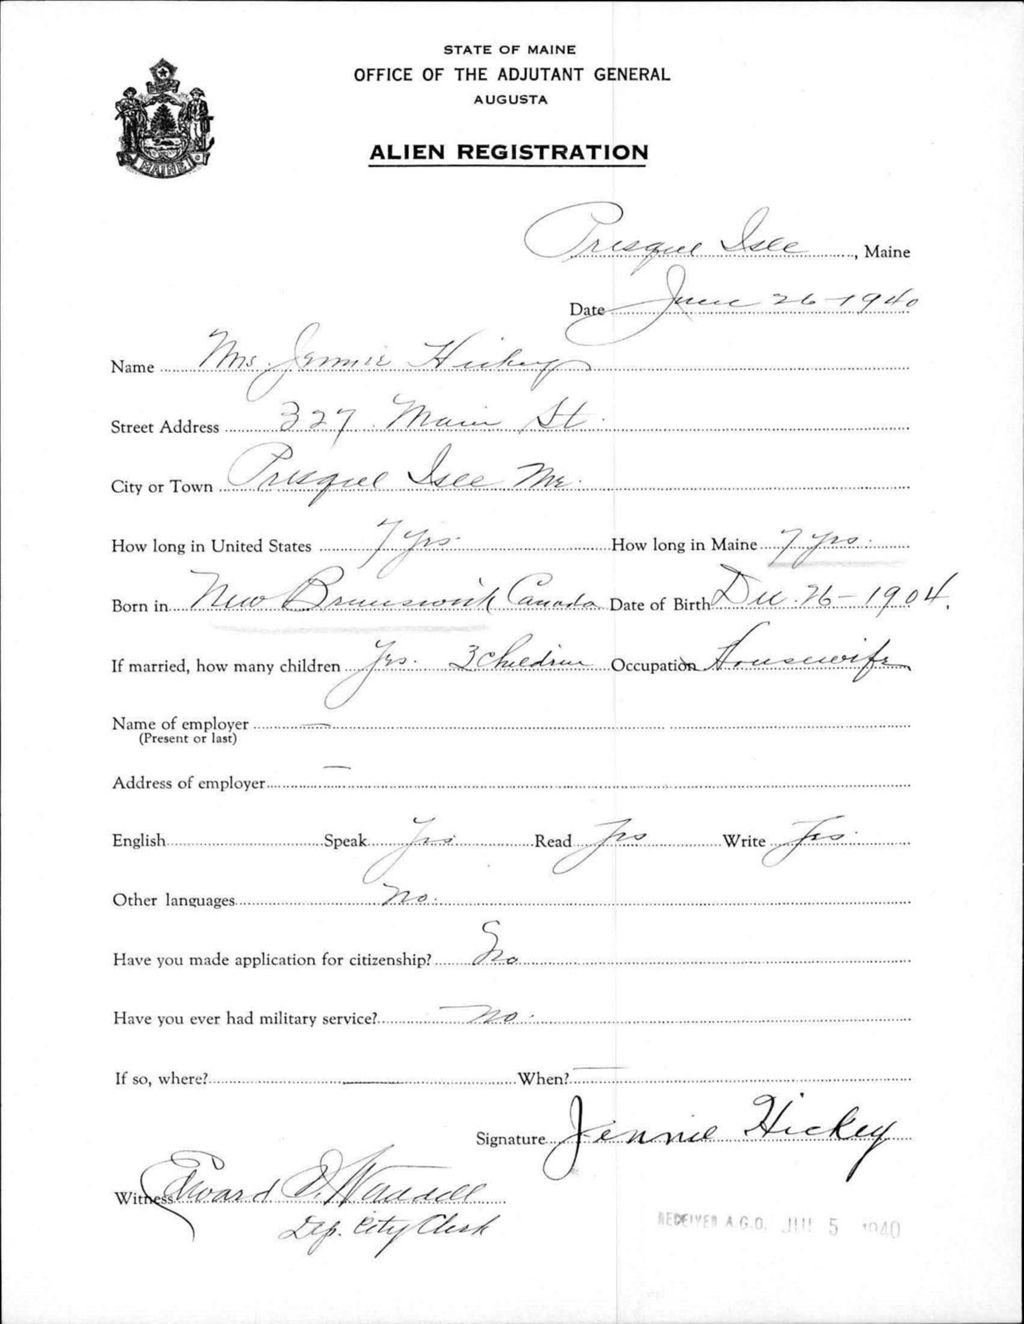 STATE OF MAINE
OFFICE OF THE ADJUTANT GENERAL
AUGUSTA
ALIEN REGISTRATION
MAINE
Presque Isle, Maine
Date June 26-1940
Name Mrs. Jennie Hickey
Street Address 327 Main St.
City or Town Presque Isle Me.
How long in United States 7 yrs. How long in Maine 7 yrs.
Born in New Brunswick Canada Date of Birth Dec. 26-1904.
If married, how many children Yes. 3 Children Occupation Housewife
Name of employer —
(Present or last)
Address of employer —
English Speak Yes Read Yes Write Yes.
Other languages No.
Have you made application for citizenship? No
Have you ever had military service? No.
If so, where? — When? —
Signature Jennie Hickey
Witness Edward D.
Dep. City Clerk
RECEIVED A.G.O. JUL 5 1940